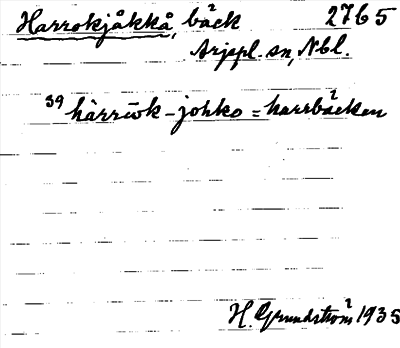 Harrokjåkkå, bäck 2765
Arjepl. sn, Nbl.
39 hārrūok-johko = harrbäcken
H. Grundström 1935